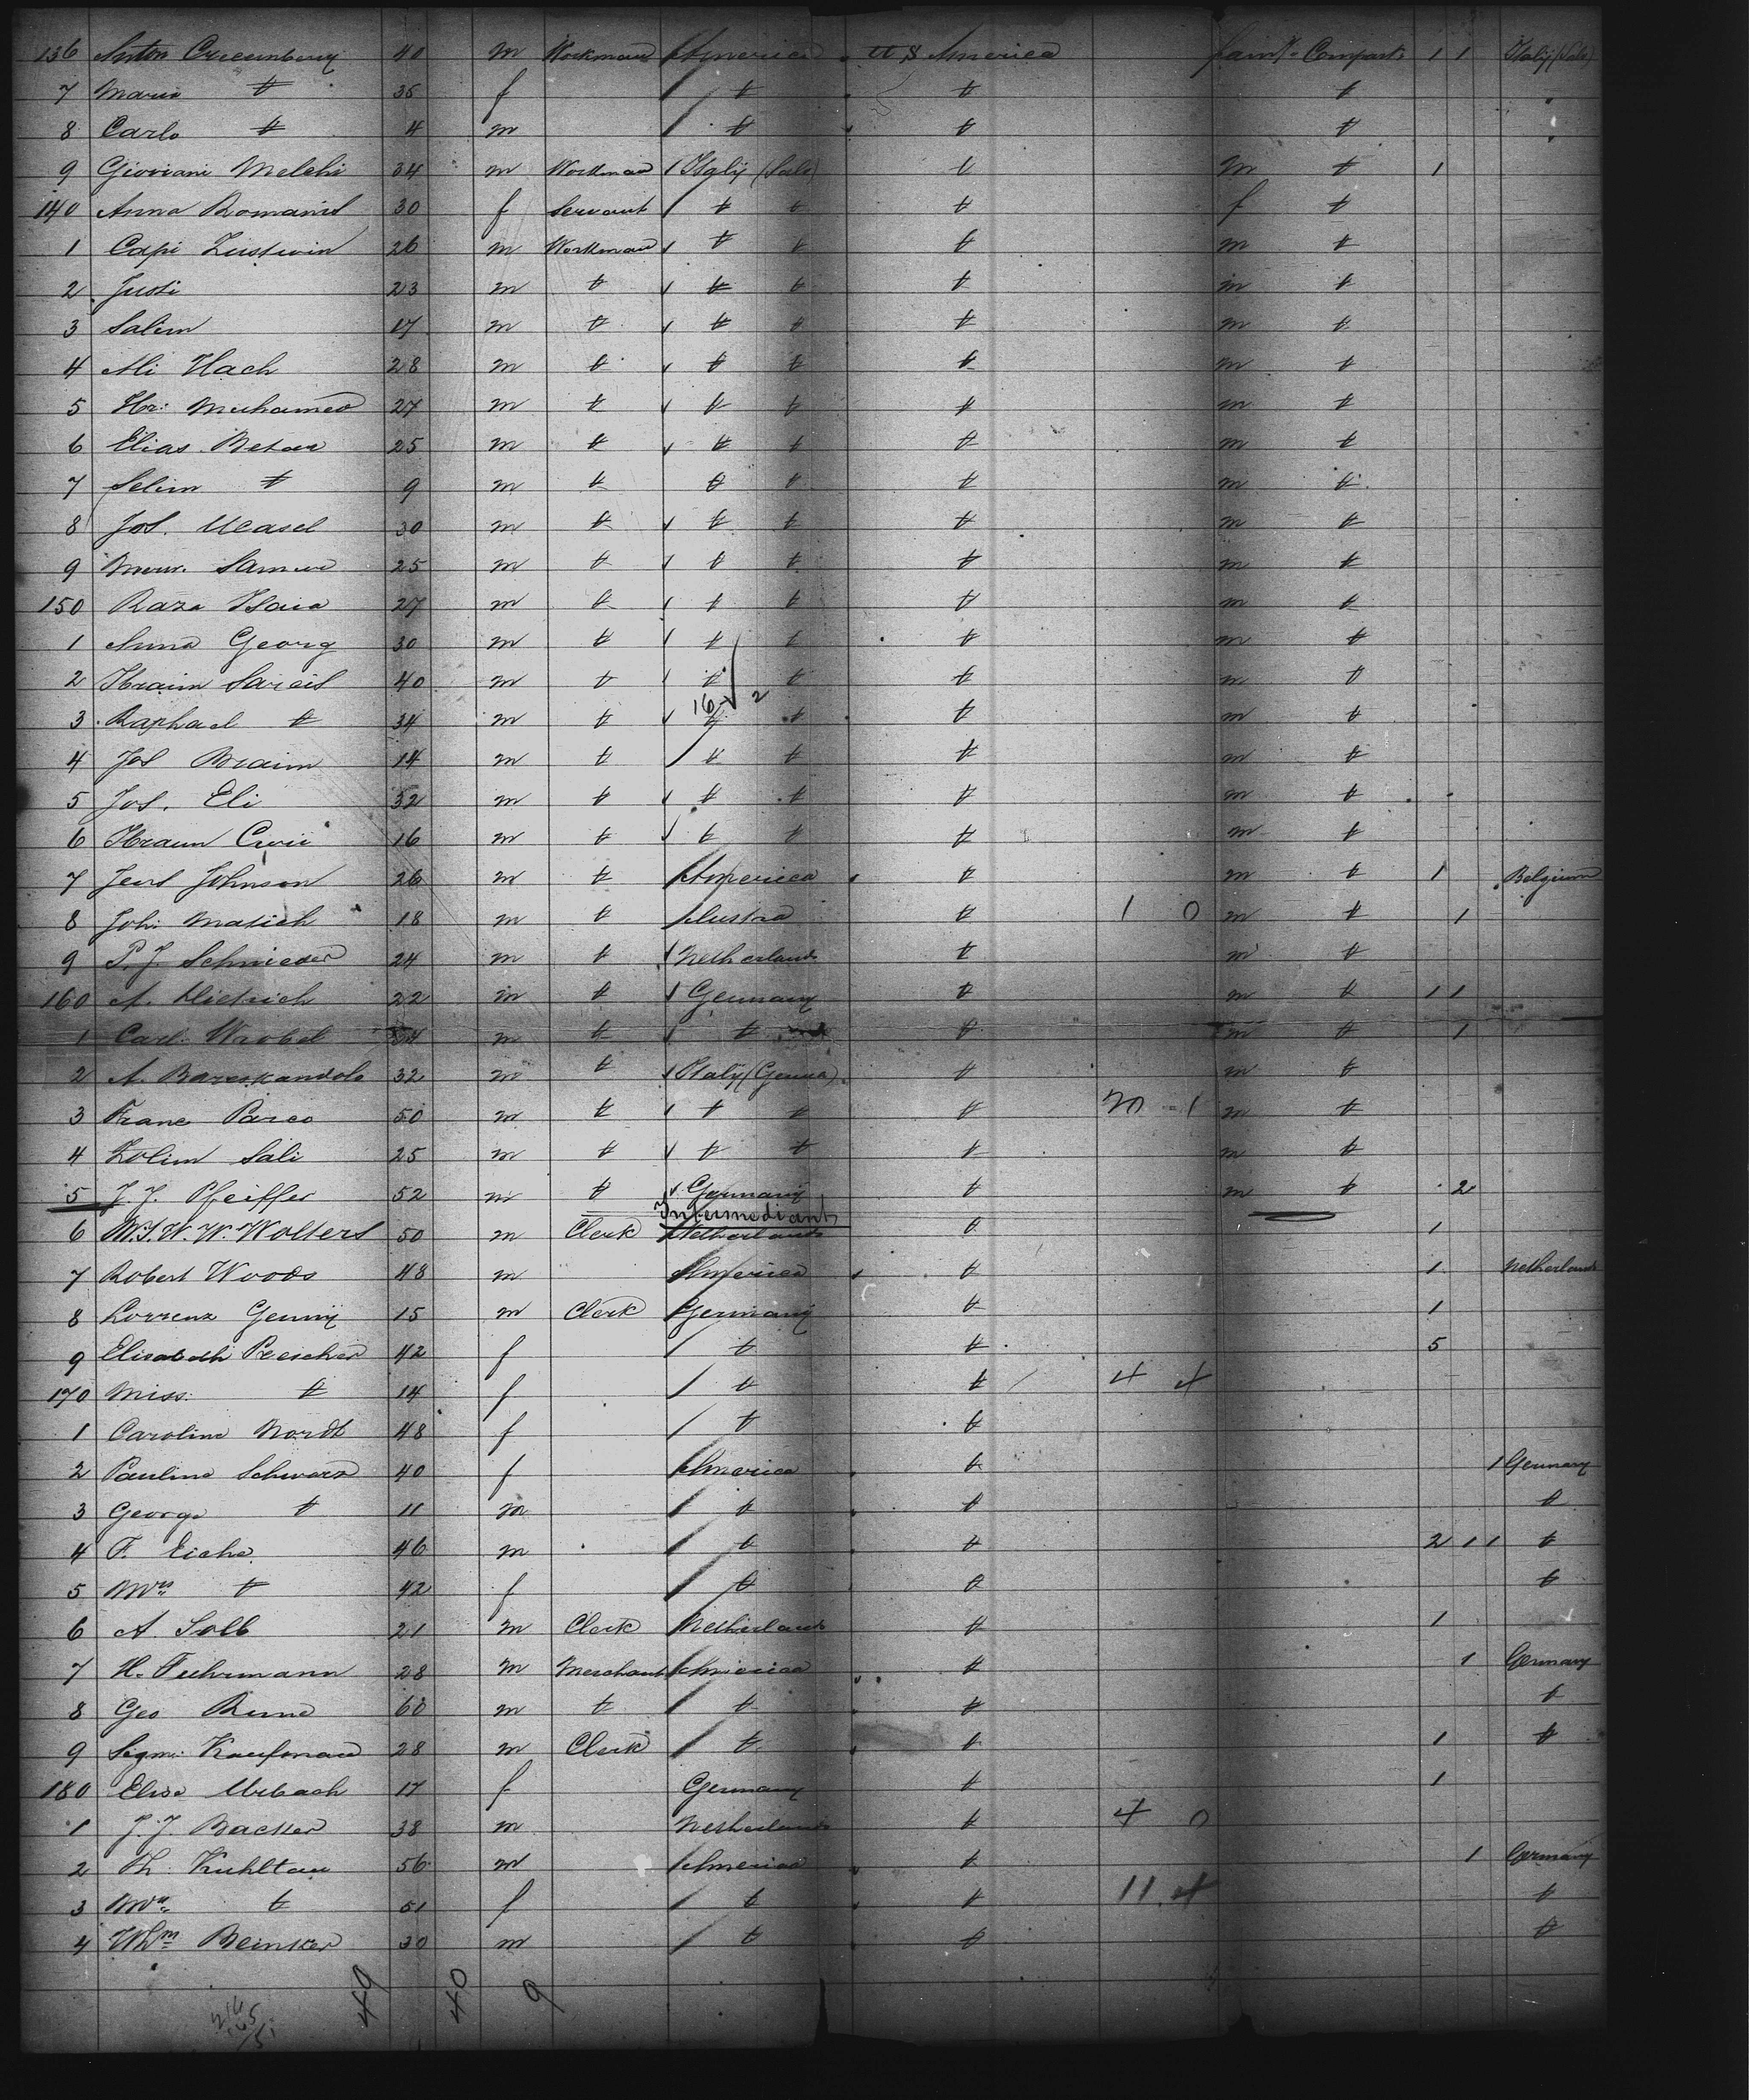 136 Anton 40 m Workman America U S America famᵞ Compartᵗ 1 1 Italy (Sale)
7 Maria " 35 f " " "
8 Carlo " 4 m " " "
9 Gioviani Melchi 34 m Workman Italy (Sale) " m " 1
140 Anna Romanis 30 f Servant " " " f "
1 Capi 26 m Workman " " " m "
2 Justi 23 m " " " " m "
3 Salim 17 m " " " " m "
4 Ali Hach 28 m " " " " m "
5 Muhamed 27 m " " " " m "
6 Elias Betar 25 m " " " " m "
7 Selim " 9 m " " " " m "
8 Jos. 30 m " " " " m "
9 25 m " " " " m "
150 Raza Isaia 27 m " " " " m "
1 Anna Georg 30 m " " " " m "
2 Ibraim Sarcis 40 m " " " " m "
16 2
3 Raphael " 34 m " " " " m "
4 Jos Braim 14 m " " " " m "
5 Jos. Eli 32 m " " " " m "
6 16 m " " " " m "
7 Johnson 26 m " America " m " 1 Belgium
8 Joh: Matich 18 m " Austria " 1 0 m " 1
9 P. J. Schnieder 24 m " Netherlands " m "
160 A. Dietrich 22 m " Germany " m " 1 1
1 Carl Wrobel m " " " m " 1
2 A. 32 m " Italy (Genua) " m "
3 Franc Parco 50 m " " " " 20 - 1 m "
4 Zolim Sali 25 m " " " " m "
5 J. J. Pfeiffer 52 m " Germany " m " 2
Intermediant
6 W. Wolters 50 m Clerk Netherlands " 1
7 Robert Woods 48 m America " 1 Netherlands
8 Lorrenz 15 m Clerk Germany " 1
9 Elisabeth Prescher 42 f " " 5
170 Miss " 14 f " " 4 4
1 Caroline Nordt 48 f " "
2 Pauline Schwarz 40 f America " 1 Germany
3 George " 11 m " " "
4 F. Eiche 46 m " " 2 1 1 "
5 Mrs " 42 f " " "
6 A. Solb 21 m Clerk Netherlands " 1
7 H. Fuhrmann 28 m Merchant America " 1 Germany
8 Geo 60 m " " " "
9 Sigm: Kaufman 28 m Clerk " " 1 "
180 Elise Urbach 17 f Germany " 1
1 J. J. Backer 38 m Netherlands " 4 0
2 Th. Kuhltau 56 m America " 1 Germany
3 Mrs " 51 f " " 11 4 "
4 Whm Beinster 30 m " " "
49 40 9